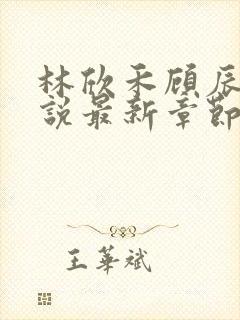 林欣禾顧辰
說最新章節
王華斌